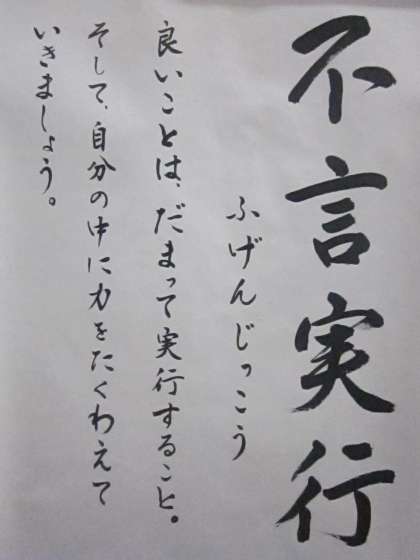 不言実行
ふげんじっこう
良いことは、だまって実行すること。
そして、自分の中に力をたくわえて
いきましょう。